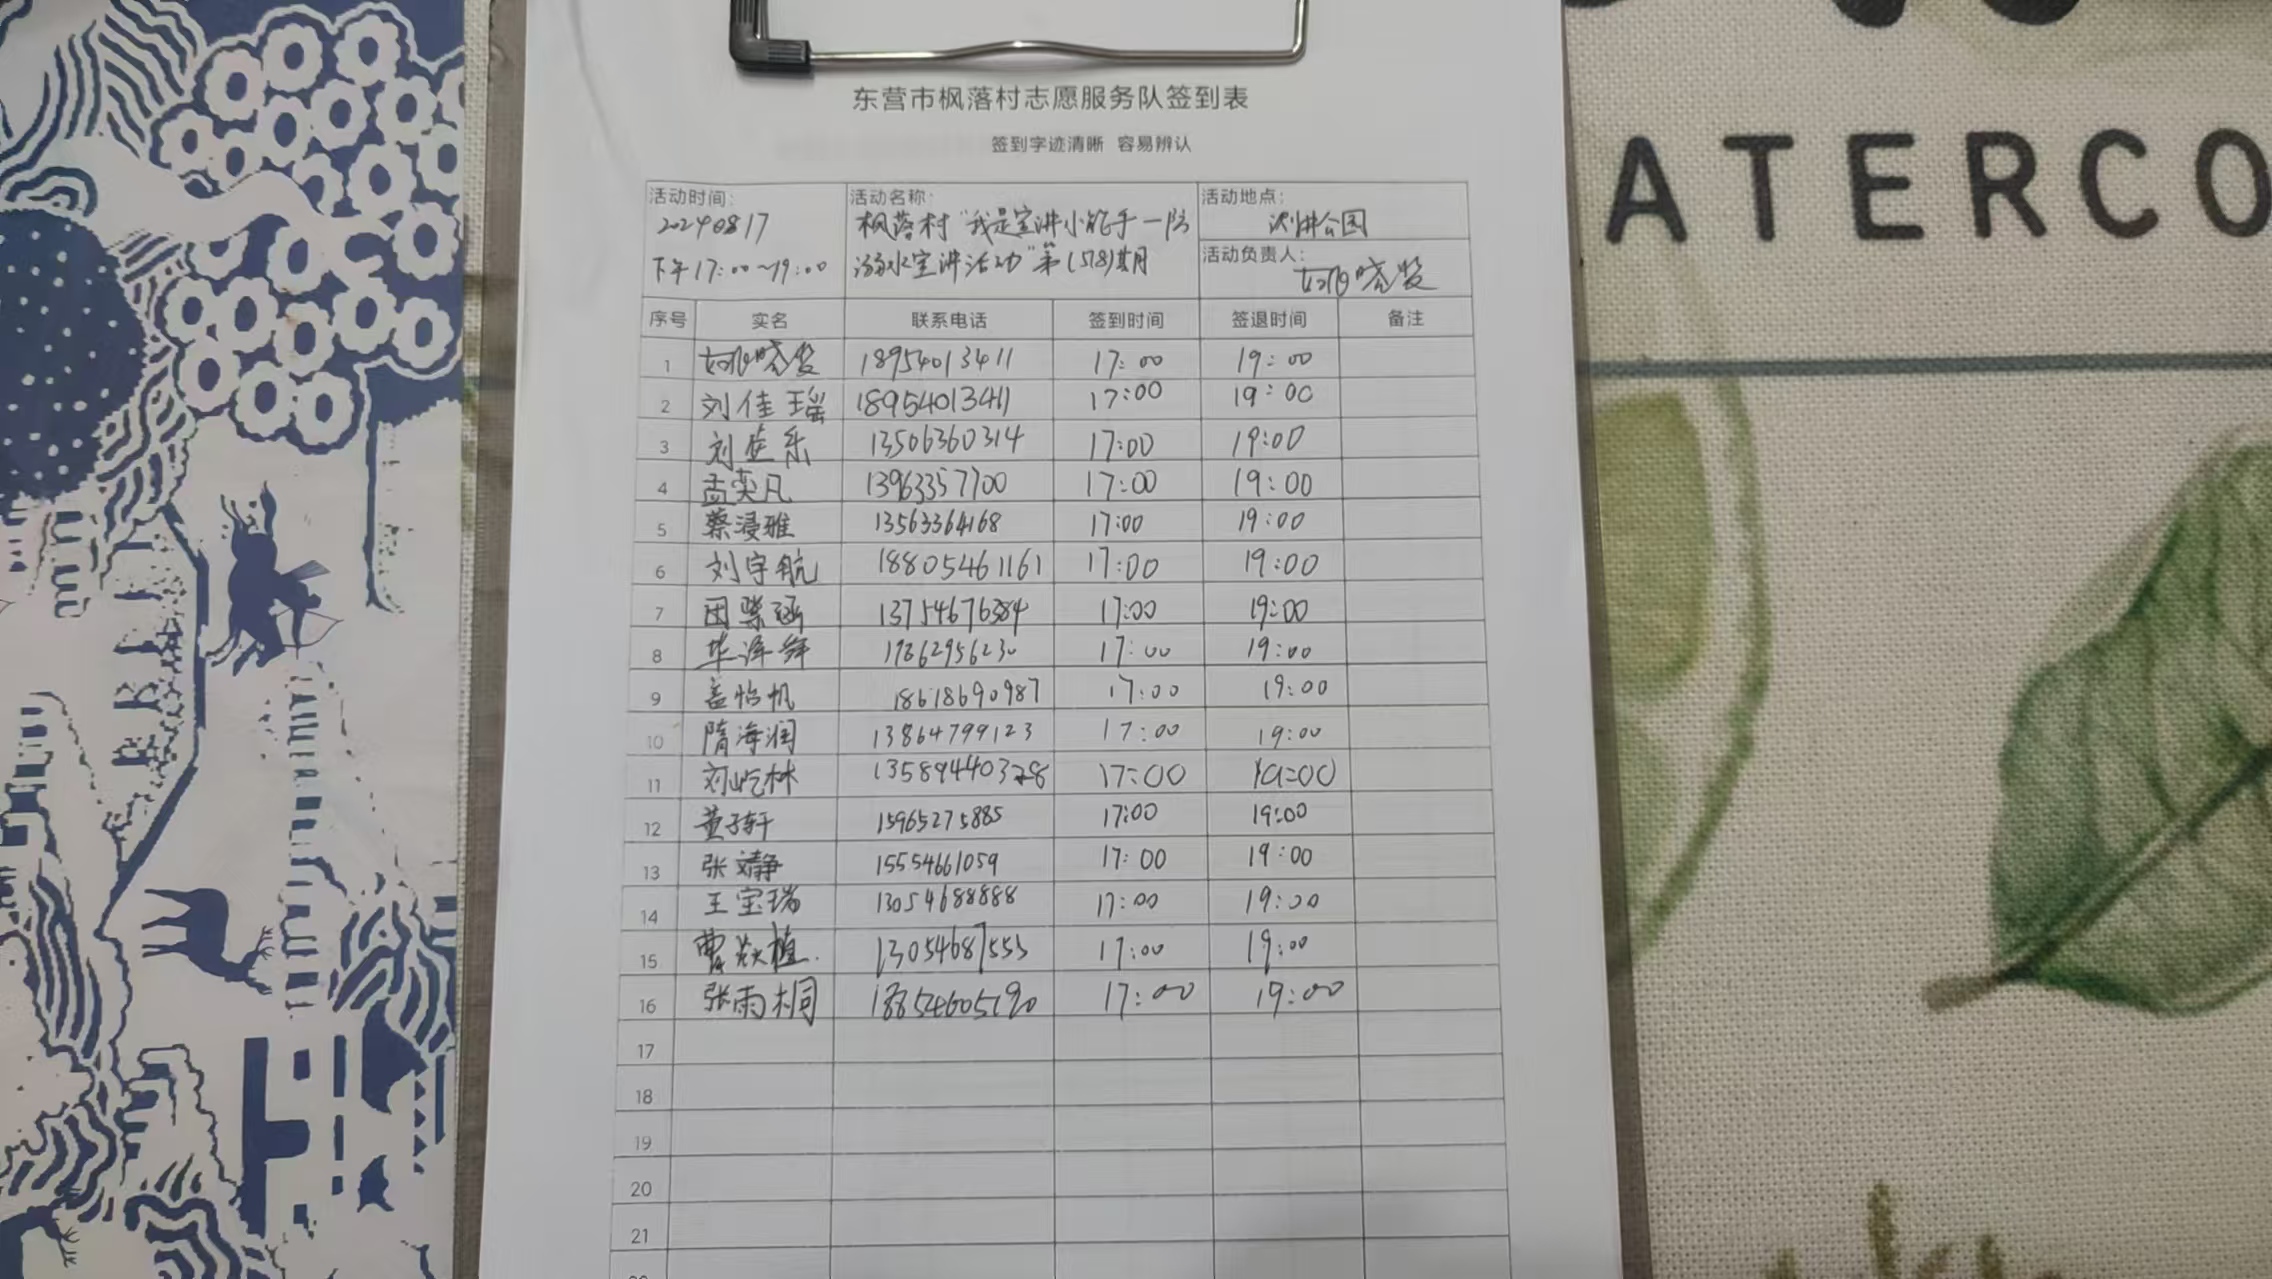 东营市枫落村志愿服务队签到表
签到字迹清晰 容易辨认
活动时间:
20240817
下午17:00~19:00
活动名称:
枫落村“我是宣讲小能手一防
溺水宣讲活动”第(578)期
活动地点:
公园
活动负责人:
晓
序号 实名 联系电话 签到时间 签退时间 备注
1 晓 18954013411 17:00 19:00
2 刘佳瑶 18954013411 17:00 19:00
3 刘佳乐 13506360314 17:00 19:00
4 孟奕凡 13963357700 17:00 19:00
5 蔡浸雅 13563364168 17:00 19:00
6 刘宇航 18805461161 17:00 19:00
7 田紫涵 13754676384 17:00 19:00
8 华泽舜 19862956230 17:00 19:00
9 盖怡帆 18618690987 17:00 19:00
10 隋海润 13864799123 17:00 19:00
11 刘屹林 17:00 19:00
12 董子轩 15965275885 17:00 19:00
13 张文静 15554661059 17:00 19:00
14 王宝瑞 13054688888 17:00 19:00
15 曹焱植 13054687553 17:00 19:00
16 张雨桐 18854605190 17:00 19:00
17
18
19
20
21
ATERCO